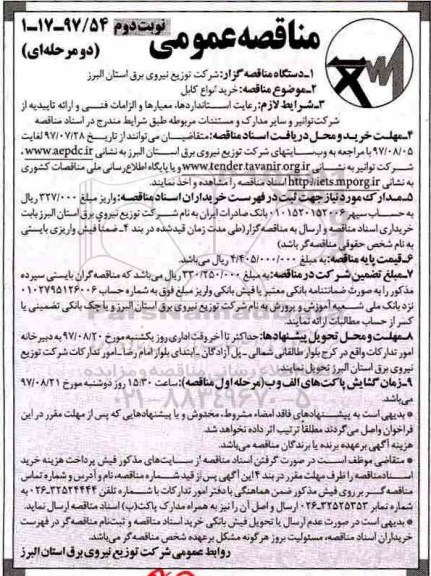 مناقصه عمومی نوبت دوم ۹۷/۵۴-۱۷-۱
(دو مرحله‌ای)
۱-دستگاه مناقصه گزار: شرکت توزیع نیروی برق استان البرز
۲-موضوع مناقصه: خرید انواع کابل
۳-شرایط لازم: رعایت استانداردها، معیارها و الزامات فنی و ارائه تاییدیه از
شرکت توانیر و سایر مدارک و مستندات مربوطه طبق شرایط مندرج در اسناد مناقصه
۴-مهلت خرید و محل دریافت اسناد مناقصه: متقاضیان می‌توانند از تاریخ ۹۷/۰۷/۲۸ لغایت
۹۷/۰۸/۰۵ با مراجعه به وب‌سایتهای شرکت توزیع نیروی برق استان البرز به نشانی www.aepdc.ir ،
شرکت توانیر به نشانی www.tender.tavanir.org.ir و یا پایگاه اطلاع‌رسانی ملی مناقصات کشوری
به نشانی http://iets.mporg.ir اسناد مناقصه را مشاهده و اخذ نمایند.
۵-مدارک مورد نیاز جهت ثبت در فهرست خریداران اسناد مناقصه: واریز مبلغ ۳۲۷/۰۰۰ ریال
به حساب سپهر ۰۱۰۱۵۲۰۱۵۲۰۰۶ بانک صادرات ایران به نام شرکت توزیع نیروی برق استان البرز بابت
خریداری اسناد مناقصه و ارسال به مناقصه گزار (طی مدت زمان قیدشده در بند ۴-ضمنا فیش واریزی بایستی
به نام شخص حقوقی مناقصه گر باشد)
۶-قیمت پایه مناقصه: به مبلغ ۴/۴۰۵/۰۰۰/۰۰۰ ریال می‌باشد.
۷-مبلغ تضمین شرکت در مناقصه: به مبلغ ۳۳۰/۲۵۰/۰۰۰ ریال می‌باشد که مناقصه گران بایستی سپرده
مذکور را به صورت ضمانتنامه بانکی معتبر یا فیش بانکی واریز مبلغ فوق به شماره حساب ۰۱۰۲۷۹۵۱۲۶۰۰۶
نزد بانک ملی شعبه آموزش و پرورش به نام شرکت توزیع نیروی برق استان البرز و یا چک بانکی تضمینی یا
کسر از حساب مطالبات ارائه نمایند.
۸-مهلت و محل تحویل پیشنهادها: حداکثر تا آخر وقت اداری روز یکشنبه مورخ ۹۷/۰۸/۲۰ به دبیرخانه
امور تدارکات واقع در کرج بلوار طالقانی شمالی-پل آزادگان-ابتدای بلوار امام رضا-امور تدارکات شرکت توزیع
نیروی برق استان البرز تحویل نمایند.
۹-زمان گشایش پاکت‌های الف و ب (مرحله اول مناقصه): ساعت ۱۵:۳۰ روز دوشنبه مورخ ۹۷/۰۸/۲۱
می‌باشد.
* بدیهی است به پیشنهادهای فاقد امضاء مشروط، مخدوش و یا پیشنهادهایی که پس از مهلت مقرر در این
فراخوان واصل می‌گردند مطلقا ترتیب اثر داده نخواهد شد.
هزینه آگهی برعهده برنده یا برندگان مناقصه می‌باشد.
* متقاضی موظف است در صورت گرفتن اسناد مناقصه از سایت‌های مذکور فیش پرداخت هزینه خرید
اسناد مناقصه را ظرف مهلت مقرر در بند ۴ این آگهی پس از قید شماره مناقصه، نام و آدرس و شماره تماس
مناقصه گر بر روی فیش مذکور ضمن هماهنگی با دفتر امور تدارکات با شماره تلفن ۳۲۵۲۴۴۴۴-۰۲۶ به
شماره نمابر ۳۲۵۲۵۳۵۳-۰۲۶ ارسال و اصل آن را نیز به همراه مدارک پاکت(ب) اسناد مناقصه ارسال نماید.
* بدیهی است در صورت عدم ارسال یا تحویل فیش بانکی خرید اسناد مناقصه و ثبت‌نام مناقصه گر در فهرست
خریداران اسناد مناقصه، مسئولیت بروز هرگونه مشکل برعهده شخص مناقصه گر می‌باشد.
روابط عمومی شرکت توزیع نیروی برق استان البرز